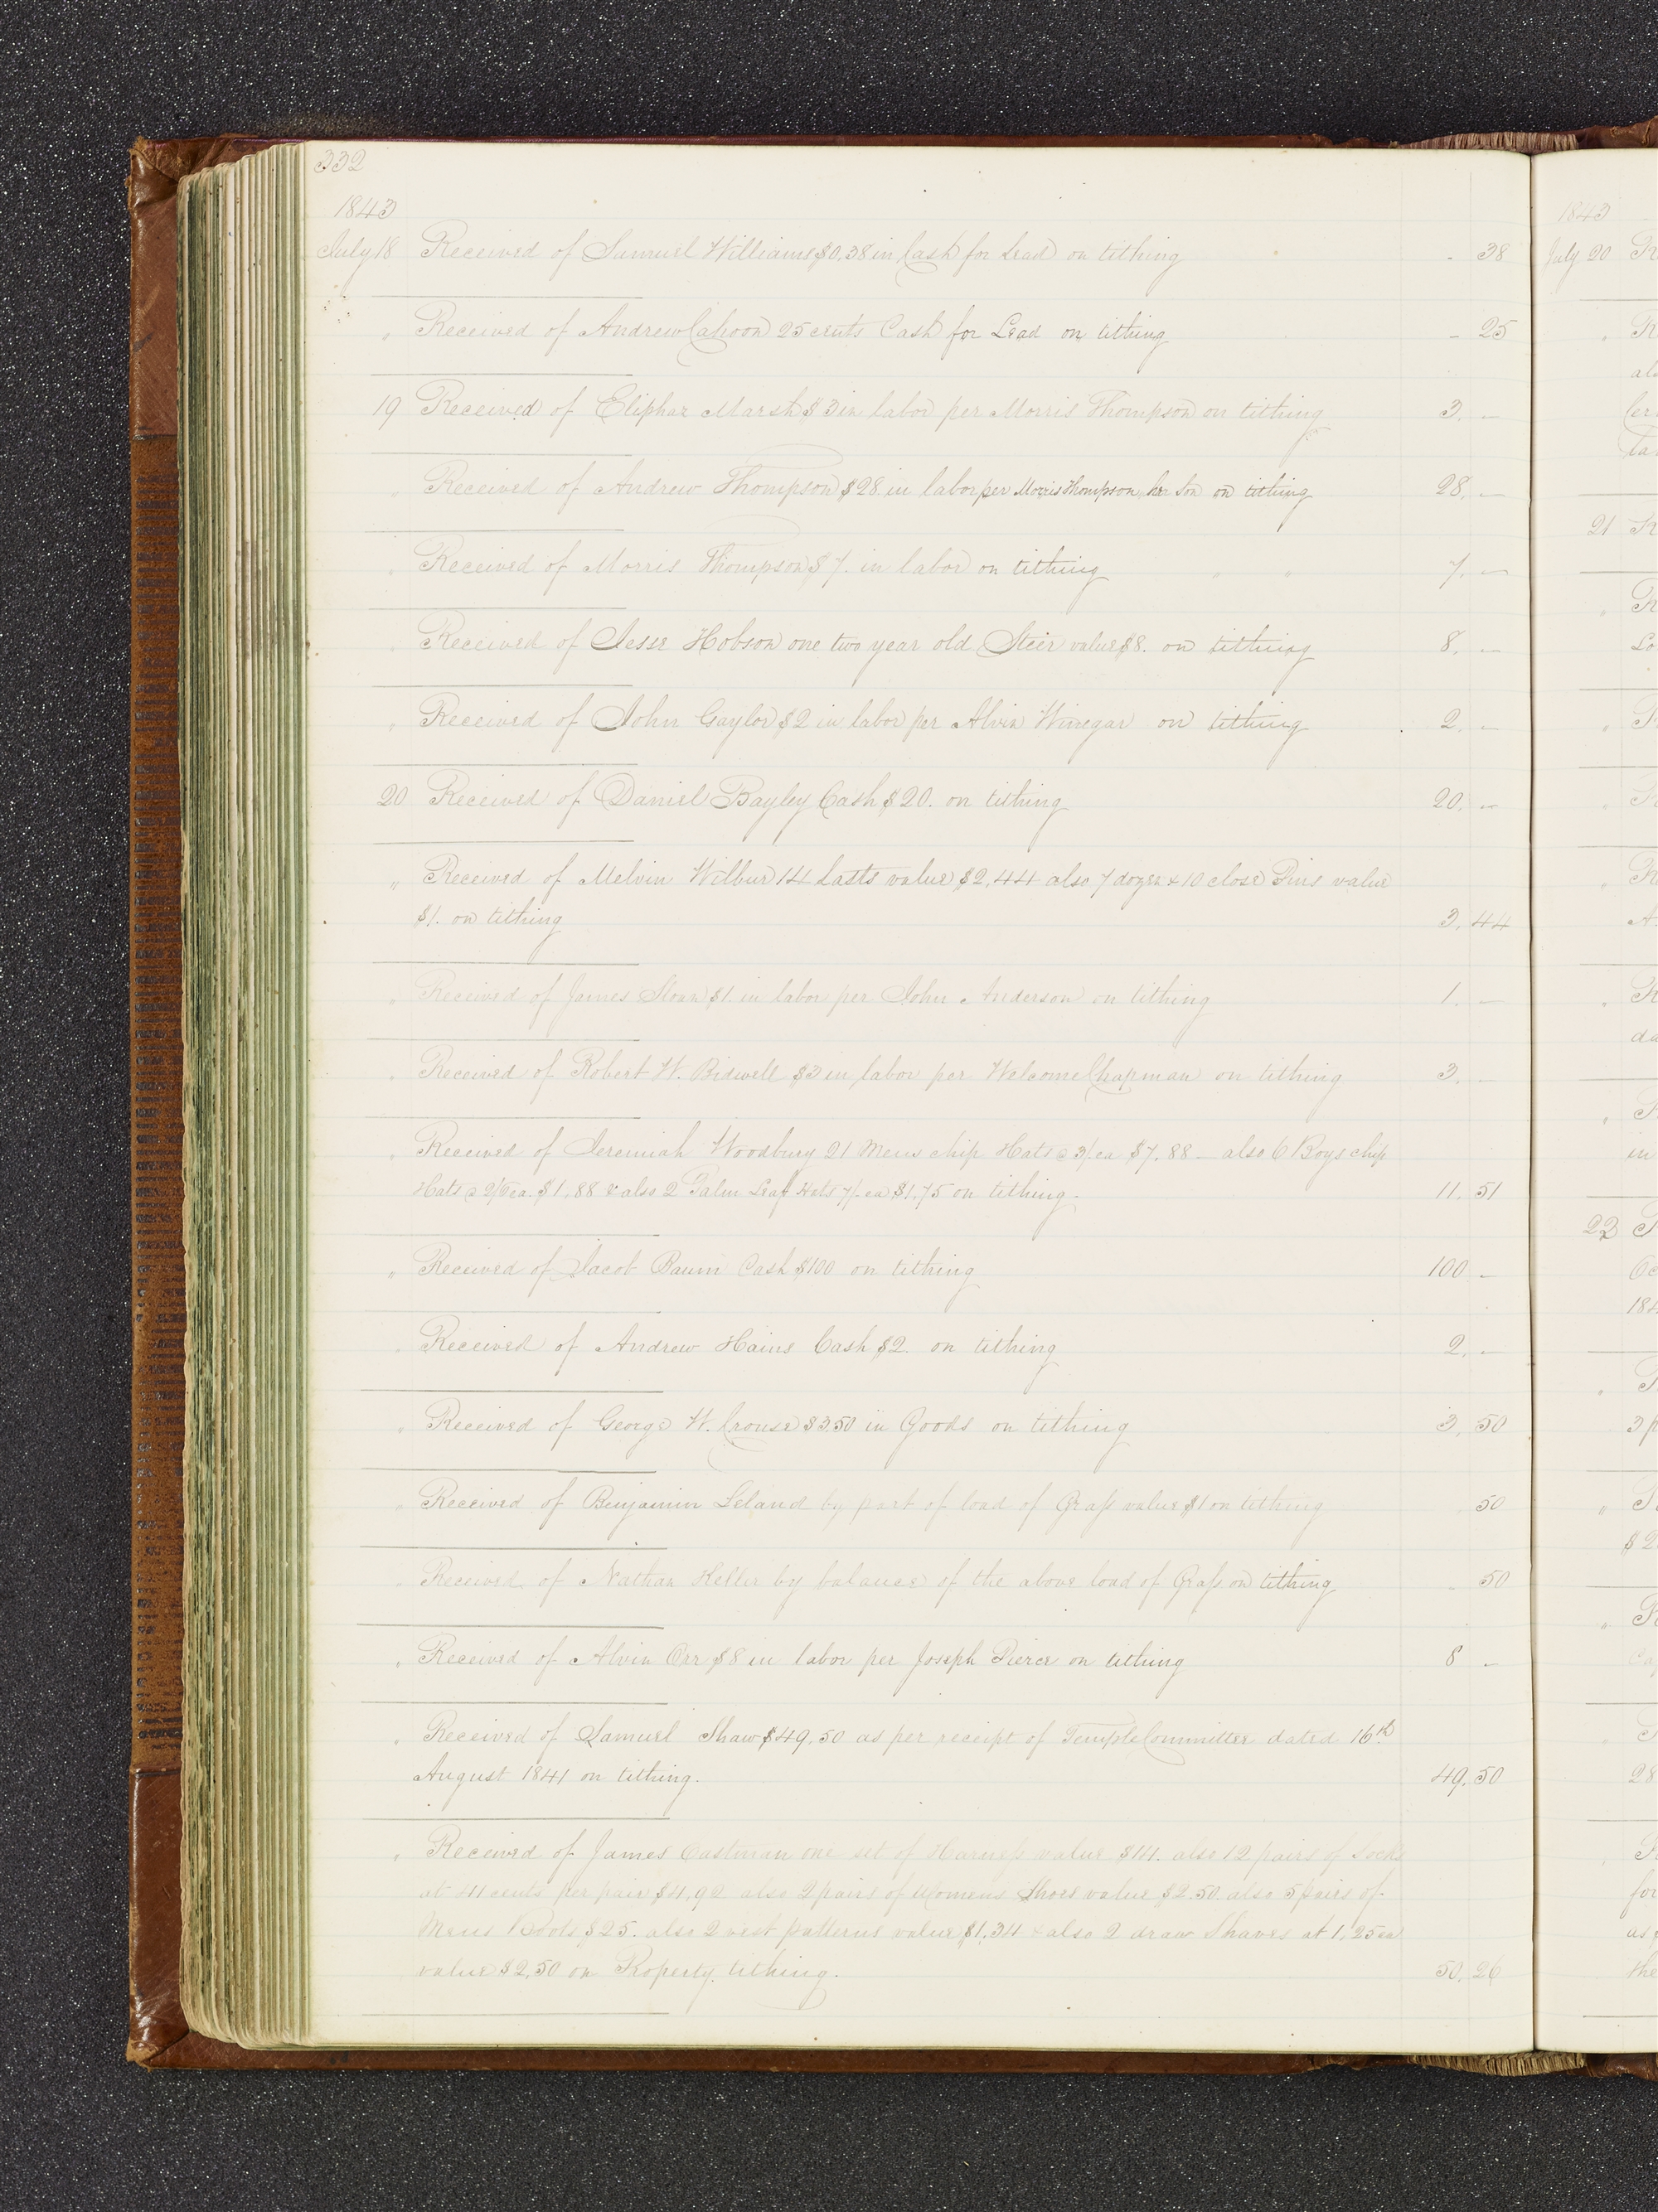 332
1843
July 18 Received of Samuel Williams $0,38 in Cash for Lead on tithing - 38
" Received of Andrew Cahoon 25 cents Cash for Lead on tithing - 25
19 Received of Eliphaz Marsh $3 in labor per Morris Thompson on tithing 3. -
" Received of Andrew Thompson $28 in labor per Morris Thompson her Son on tithing 28. -
" Received of Morris Thompson $7. in labor on tithing " " 7. -
" Received of Jesse Hobson one two year old Steer value $8. on tithing 8. -
" Received of John Gaylor $2 in labor per Alvin Winegar on tithing 2. -
20 Received of Daniel Bayley Cash $20. on tithing 20. -
" Received of Melvin Wilbur 14 Lasts value $2,44 also 7 dozen & 10 close Pins value
$1. on tithing 3,44
" Received of James Sloan $1. in labor per John Anderson on tithing 1. -
" Received of Robert W. Bidwell $3 in labor per Welcome Chapman on tithing 3. -
" Received of Jeremiah Woodbury 21 Mens chip Hats @ 3/ ea $7,88 - also 6 Boys chip
Hats @ 2/6 ea. $1.88 & also 2 Palm Leaf Hats 7/. ea $1,75 on tithing. 11. 51
" Received of Jacob Baum Cash $100 on tithing 100 -
" Received of Andrew Hains Cash $2. on tithing 2. -
" Received of George W. Crouse $3.50 in Goods on tithing 3, 50
" Received of Benjamin Leland by part of load of Grass value $1 on tithing 50
" Received of Nathan Keller by balance of the above load of Grass on tithing 50
" Received of Alvin Orr $8 in labor per Joseph Pierce on tithing 8 -
" Received of Samuel Shaw $49.50 as per receipt of Temple Committee dated 16th
August 1841 on tithing. 49,50
" Received of James Eastman one set of Harness value $14. also 12 pairs of Socks
at 41 cents per pair $4,92 also 2 pairs of Womens Shoes value $2.50 also 5 pairs of
Mens Boots $25. also 2 vest patterns value $1,34 & also 2 draw Shaves at 1,25 ea
value $2,50 on Property tithing. 50,26
1843
July 20
21
22